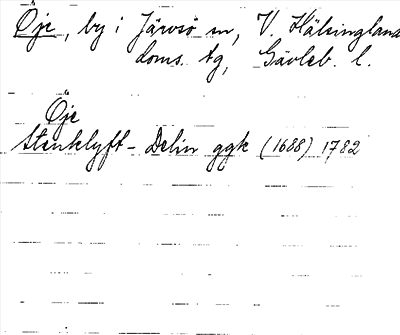 Öje, by i Järvsö sn, V. Hälsingland
doms. tg, Gävleb. l.
Öje
Stenklyft - Delin ggk (1688) 1782